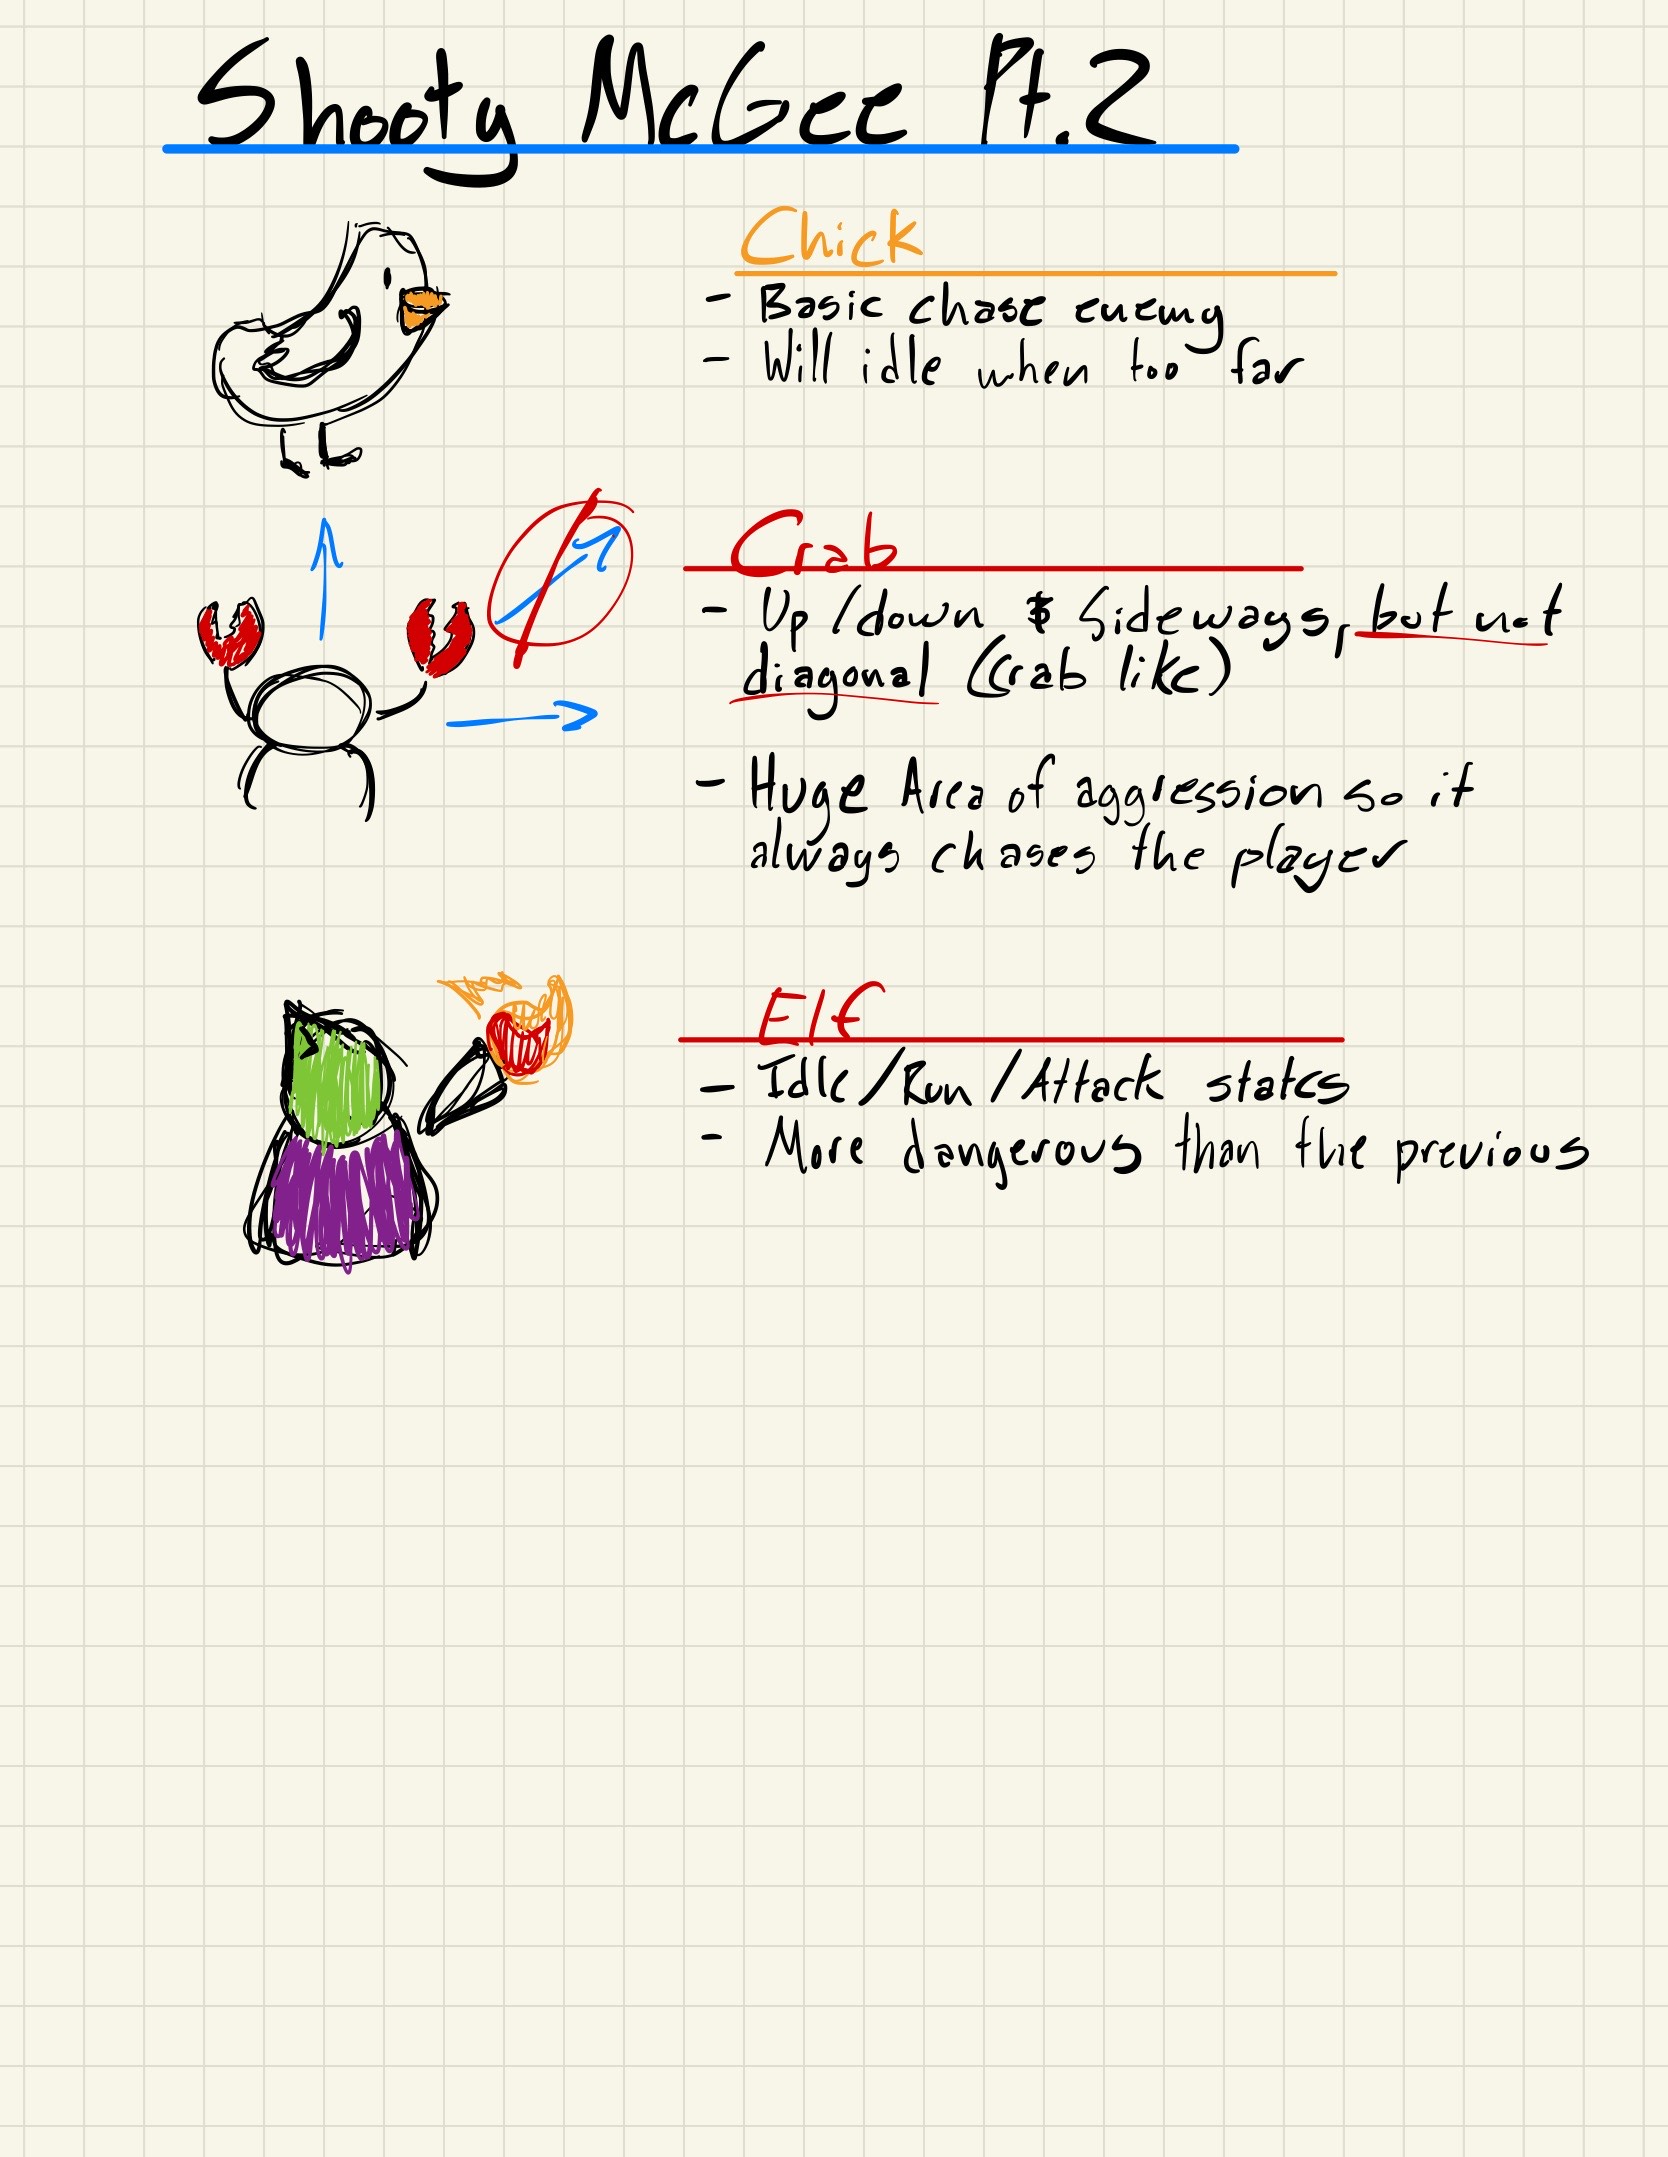 Shooty McGee Pt.2
Chick
- Basic chase enemy
- Will idle when too far
Crab
- Up/down & Sideways, but not
diagonal (Crab like)
- Huge Area of aggression so it
always chases the player
Elf
- Idle/Run/Attack states
- More dangerous than the previous